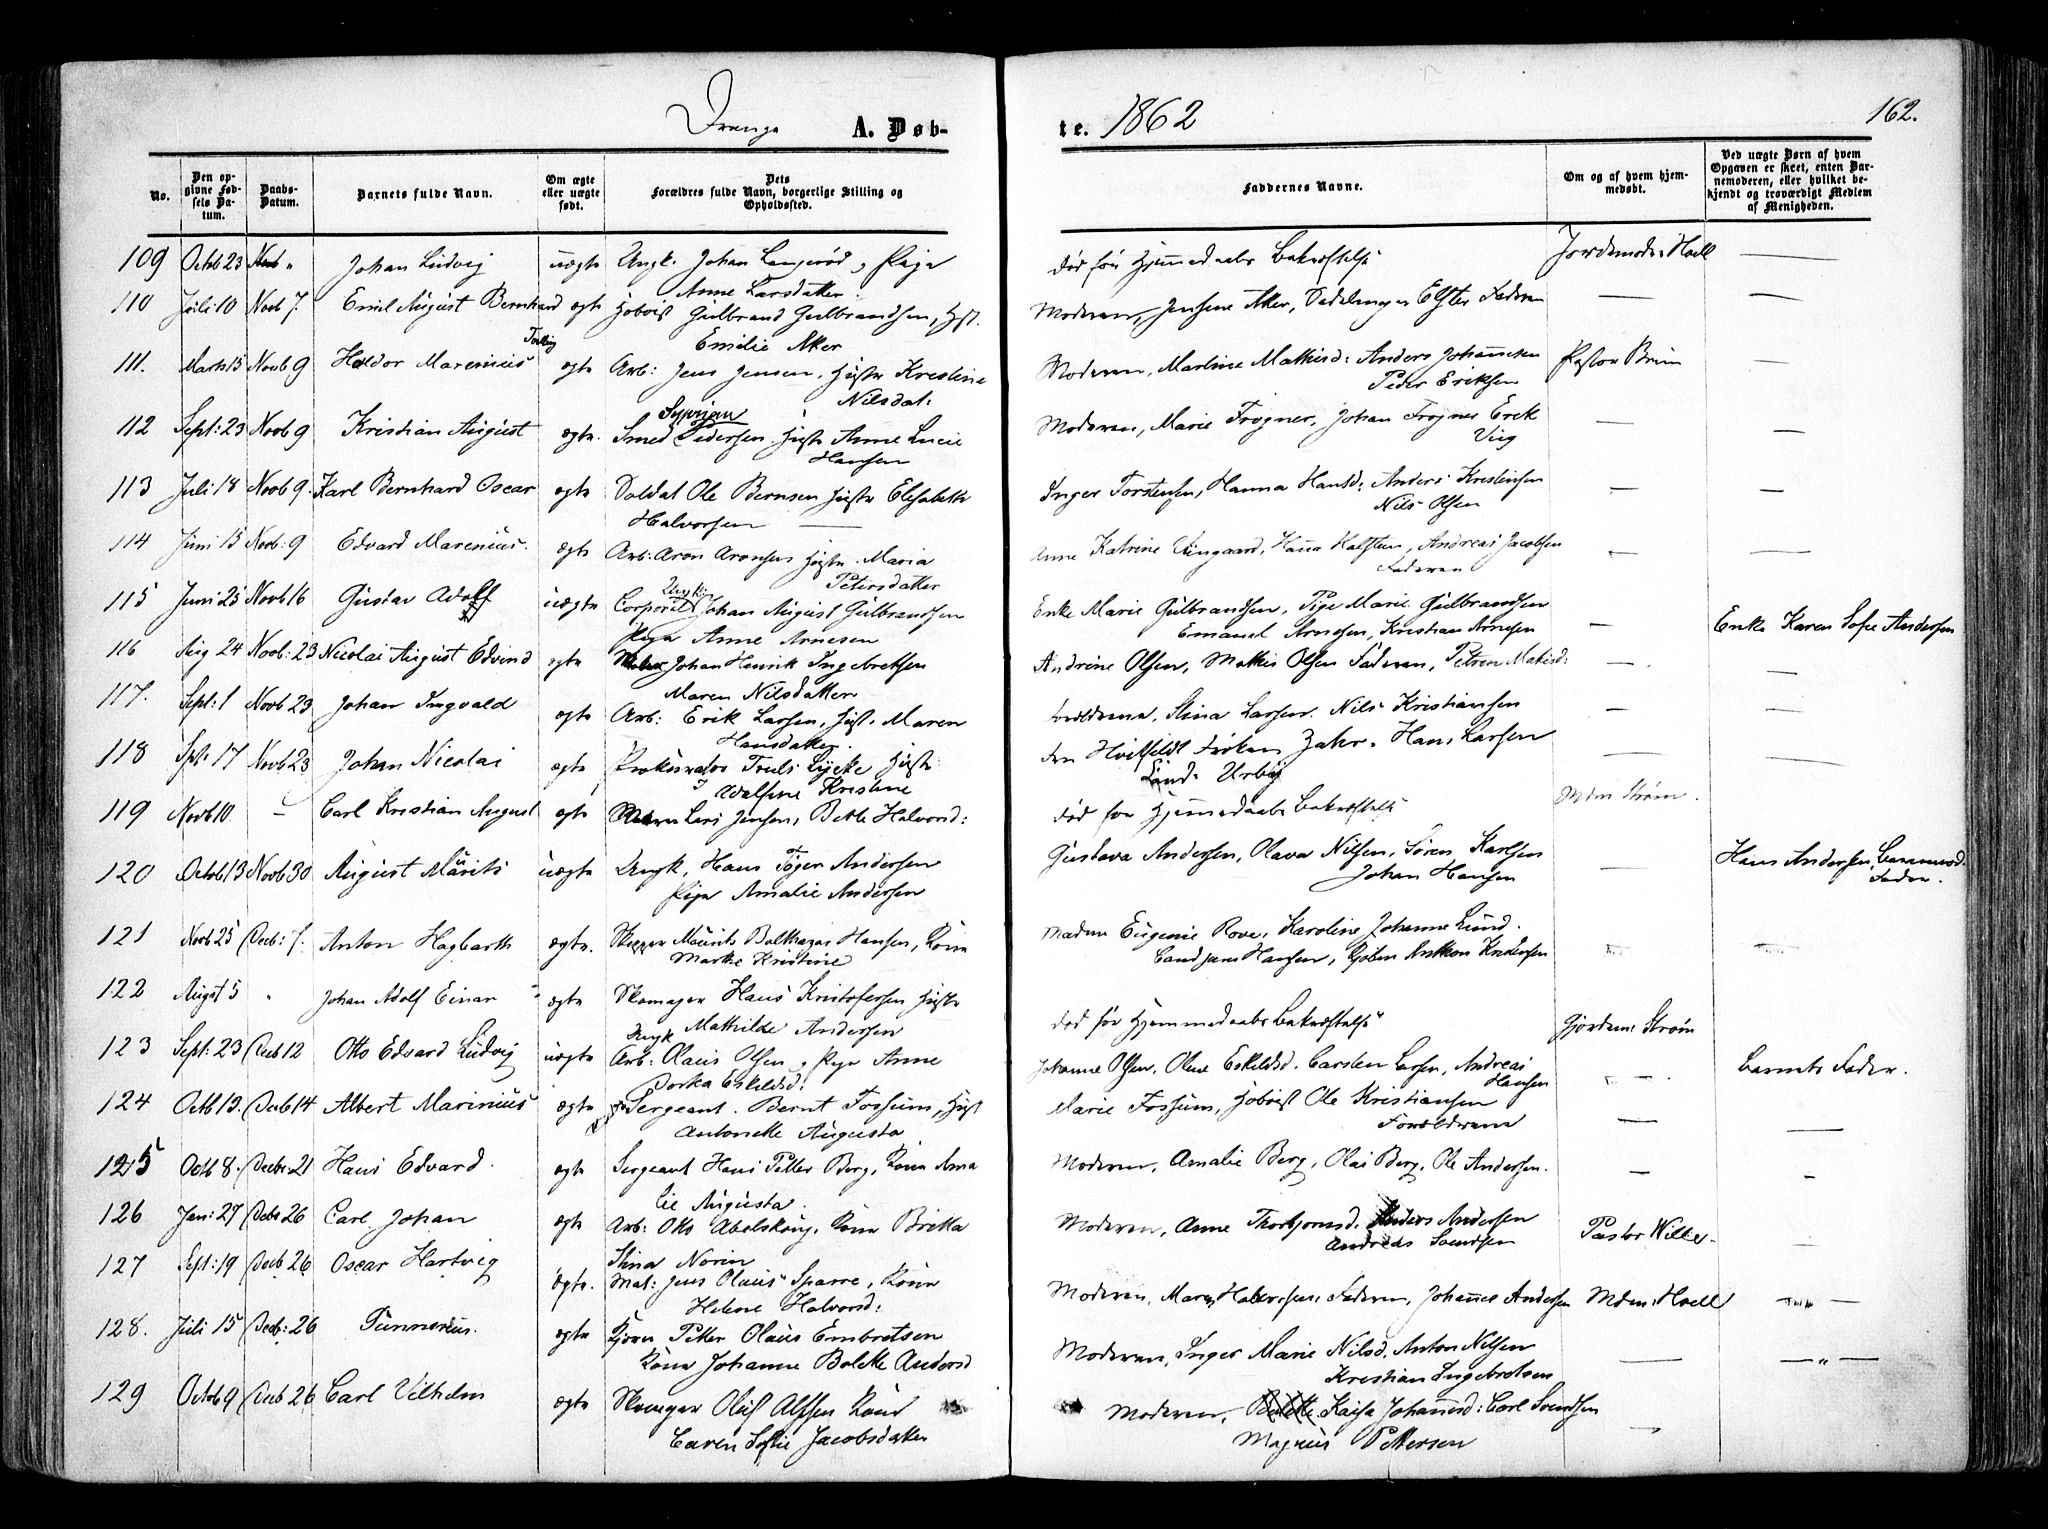 Drenge A. Døb-
te. 1862 162.
No.
Den op-
givne Fød-
sels Da-
tum.
Daabs-
Datum.
Barnets fulde Navn.
Om ægte
eller uægte
født.
Dets
Forældres fulde Navn, borgerlige Stilling og
Opholdssted.
Faddernes Navne.
Om og af hvem hjem-
medøbt.
Ved uægte Børn af hvem
Opgaven er skeet, enten Bar-
nemoderen, eller hvilket be-
kjendt og troværdigt Medlem
af Menigheden.
109 Octob 23 " Johan Ludvig uægte Ungk. Johan Langerød, Pige død før Hjemmedaabs Bekræftelse Jordemoder Hoell —
Anne Larsdatter.
110 Juli 10 Novb 7. Emil August Bernhard ægte Hoboist Gulbrand Gulbrandsen, Hst. Moderen, Jensine Aker, Elster Faderen — —
Emilie Aker
111. Marts 15 Novb 9 Haldor Marenius ægte Arb: Jens Jensen, Hustr Kristine Moderen, Martine Mathisd: Anders Johannesen Pastor Brun —
Nilsdat: Peder Eriksen
112 Sept: 23 Novb 9 Kristian August ægte. Smed Pedersen, Hustr Anne Lucie Moderen, Marie Frogner, Johan Frogner Erik — —
Hansen
113 Juli 18 Novb 9. Karl Bernhard Oscar ægte Soldat Ole Bernsen Hustr Elisabeth Inger Torstensen, Hanna Hansd: Anders Kristensen — —
Halvorsen — Nils Olsen
114 Juni 15 Novb: 9 Edvard Marenius. ægte Arb: Aron Aronsen Hustr. Maria Anne Katrine Vingaard, Hana Halsten, Andreas Jacobsen — —
Petersdatter Faderen
115 Juni 25 Novb 16 Gustav Adolf uægte Corporal Ungk: Johan August Gulbrandsen Enke Marie Gulbrandsen, Pige Marie Gulbrandsen — Enke Karen Sofie Andersen
Pige Anne Arnesen Emanuel Arnesen, Kristian Arnesen
116 Aug 24 Novb: 23 Nicolai August Edvind ægte Johan Henrik Ingebretsen Andrine Olsen, Mathis Olsen Faderen, Petren Mathisd: — —
Maren Nilsdatter
117. Sept: 1 Novb 23 Johan Ingvald ægte Arb: Erik Larsen, Hust. Maren Forældrene, Stina Larsen. Nils Kristiansen — —
Hansdatter.
118 Spt. 17 Novb 23 Johan Nicolai ægte Prokurator Truls Lycke Hustr Fru Hvitfeldt Frøken Hans Larsen — —
Adolfine Kristine
119 Novb 10 — Carl Kristian August ægte Lars Jensen, Berte Halvorsd: død før Hjemmedaabs Bekræftelse Mdm Strøm.
120 Octob 13 Novb 30 August Maurits uægte Ungk, Hans Andersen Gustava Andersen, Olava Nilsen, Søren Karlsen — Hans Andersen, Barnemod.
Pige Amalie Andersen Johan Hansen Fader.
121 Novb 25 Decb: 7. Anton Hagbarth ægte. Skipper Maurits Balthazar Hansen, Kone Madm Eugenie Rove, Karoline Johanne Lund.
Marthe Kristine
122 Augst 5 " Johan Adolf Einar ægte Skomager Hans Kristofersen Hustr død før Hjemmedaabs Bekræftelse Gjordem: Strøm
Mathilde Andersen
123 Sept: 23 Decb 12 Otto Edvard Ludvig uægte Ungk Arb: Olaus Olsen, Pige Anne Johanne Olsen, Oline Eskildsd. Carsten Larsen, Andreas — Barnets Fader.
Dorthea Eskildsd: Hansen
124 Octb 13. Decb 14 Albert Marinius ægte Sergeant. Bernt Fossum, Hust Marie Fossum, Hoboist Ole Kristiansen — —
Antonette Augusta Forældrene
125 Octb 8. Decbr. 21 Hans Edvard. ægte Sergeant Hans Petter Berg, Kone Ama Moderen, Amalie Berg, Olai Berg, Ole Andersen. — -
lie Augusta
126 Jan: 27 Decb 26 Carl Johan ægte Arb: Otto Abelskoug, Kone Britta Moderen, Anne Thorbjornsd. Anders Andersen Pastor Wille. —
Stina Norin Andreas Svendsen
127 Sept: 19 Decb 26 Oscar Hartvig ægte. Mat: Jens Olaus Sparre, Kone Moderen, Maren Halvorsen, Faderen, Johannes Andersen Mdm: Hoell — " —
Helene Halvorsd:
128. Juli 15 Decb: 26 Gunnerius. ægte Petter Olaus Embretsen Moderen, Inger Marie Nilsd. Anton Nilsen — — " —
Kone Johanne Bolette Andersd Kristian Ingebretsen
129 Octob 9 Decb 26 Carl Vilhelm ægte Skomager Oluf Alfsen Kone Moderen, Kaisa Johannesd: Carl Svendsen —
Caren Sofie Jacobsdatter Magnus Pettersen